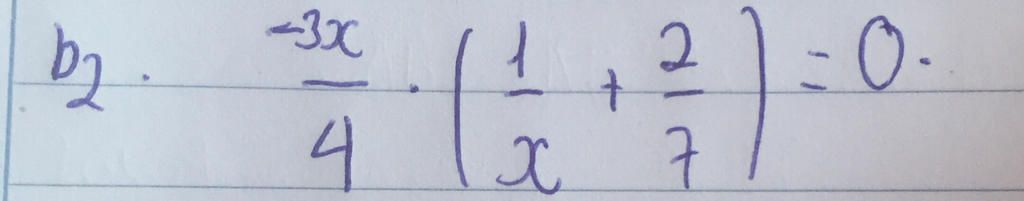 b2. -3x/4 . (1/x + 2/7) = 0.